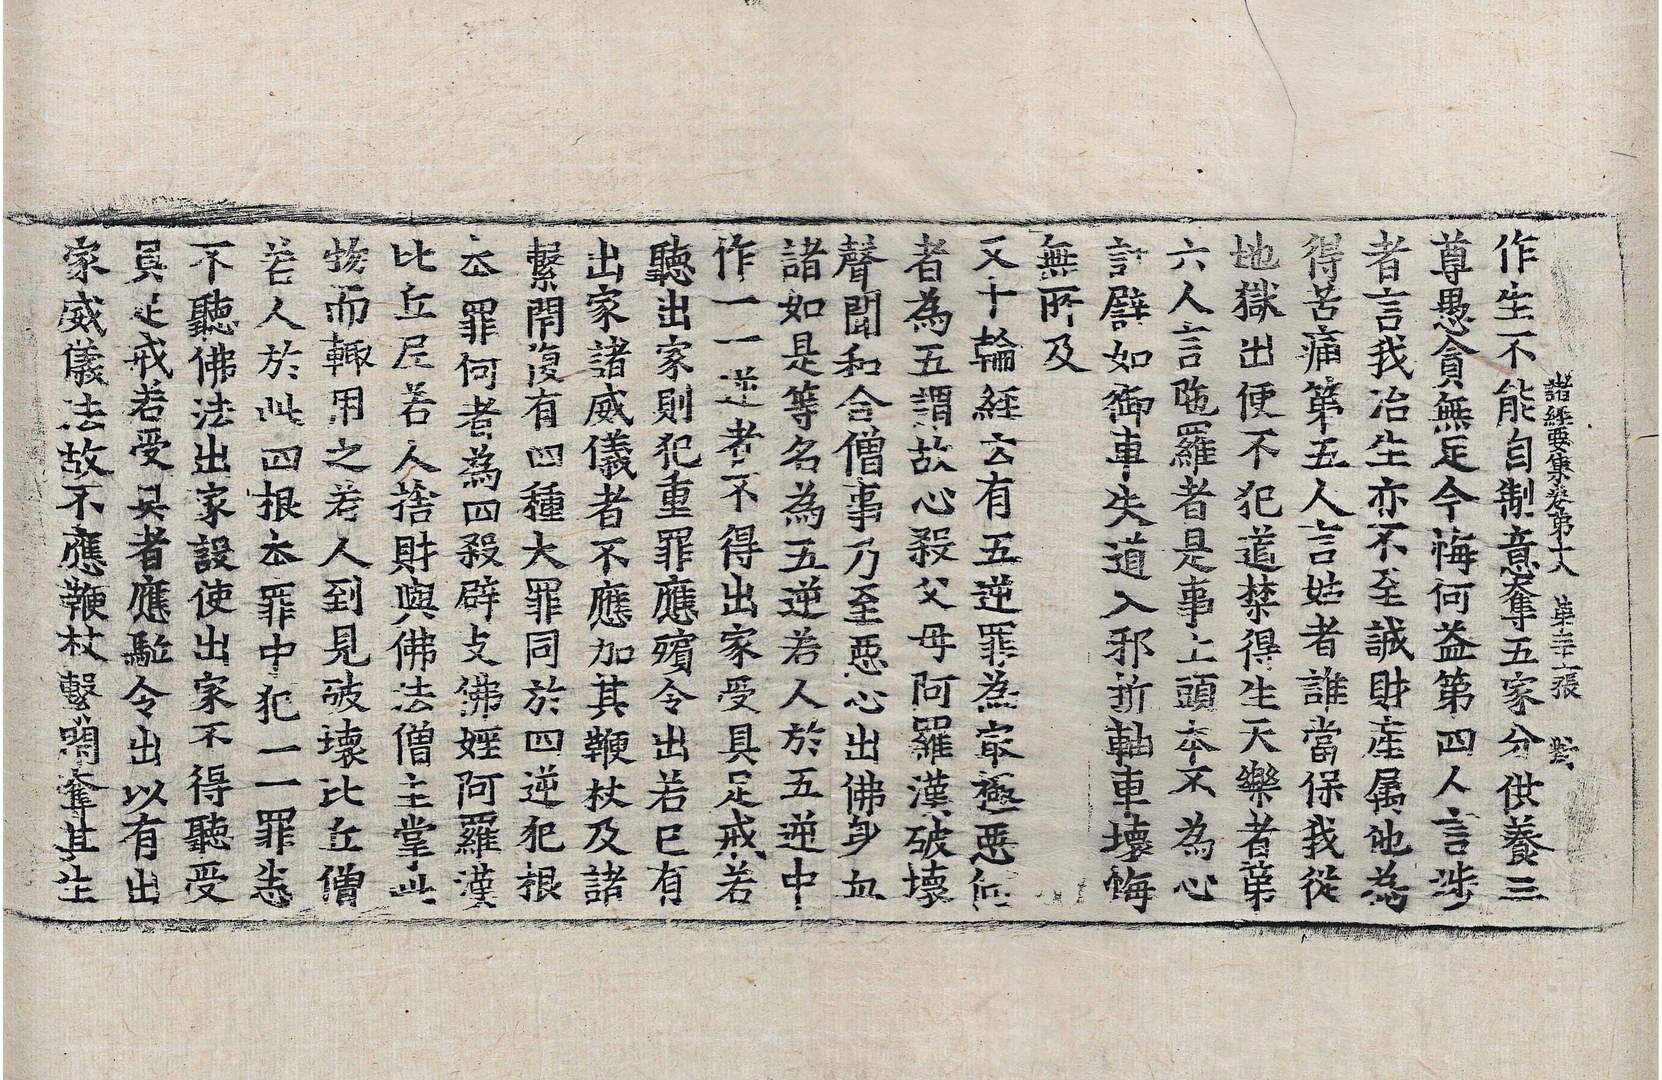 諸經要集卷第六 第三十二張 對
作生不能自制意奪五家分供養三
尊愚貪無足今悔何益第四人言涉
者言我治生亦不至誠財產属他為
得苦痛第五人言姑者誰當保我從
地獄出便不犯道禁得生天樂者第
六人言陁羅者是事上頭夲不為心
計譬如御車失道入邪折軸車壞悔
無所及
又十輪經云有五逆罪為㝡極惡何
者為五謂故心殺父母阿羅漢破壞
聲聞和合僧事乃至惡心出佛身血
諸如是等名為五逆若人於五逆中
作一一逆者不得出家受具足戒若
聽出家則犯重罪應擯令出若已有
出家諸威儀者不應加其鞭杖及諸
繫閇復有四種大罪同於四逆犯根
夲罪何者為四殺辟支佛婬阿羅漢
比丘尼若人捨財與佛法僧主掌此
物而輙用之若人到見破壞比丘僧
若人於此四根夲罪中犯一一罪悉
不聽佛法出家設使出家不得聽受
具足戒若受具者應驅令出以有出
家威儀法故不應鞭杖繫閇奪其生